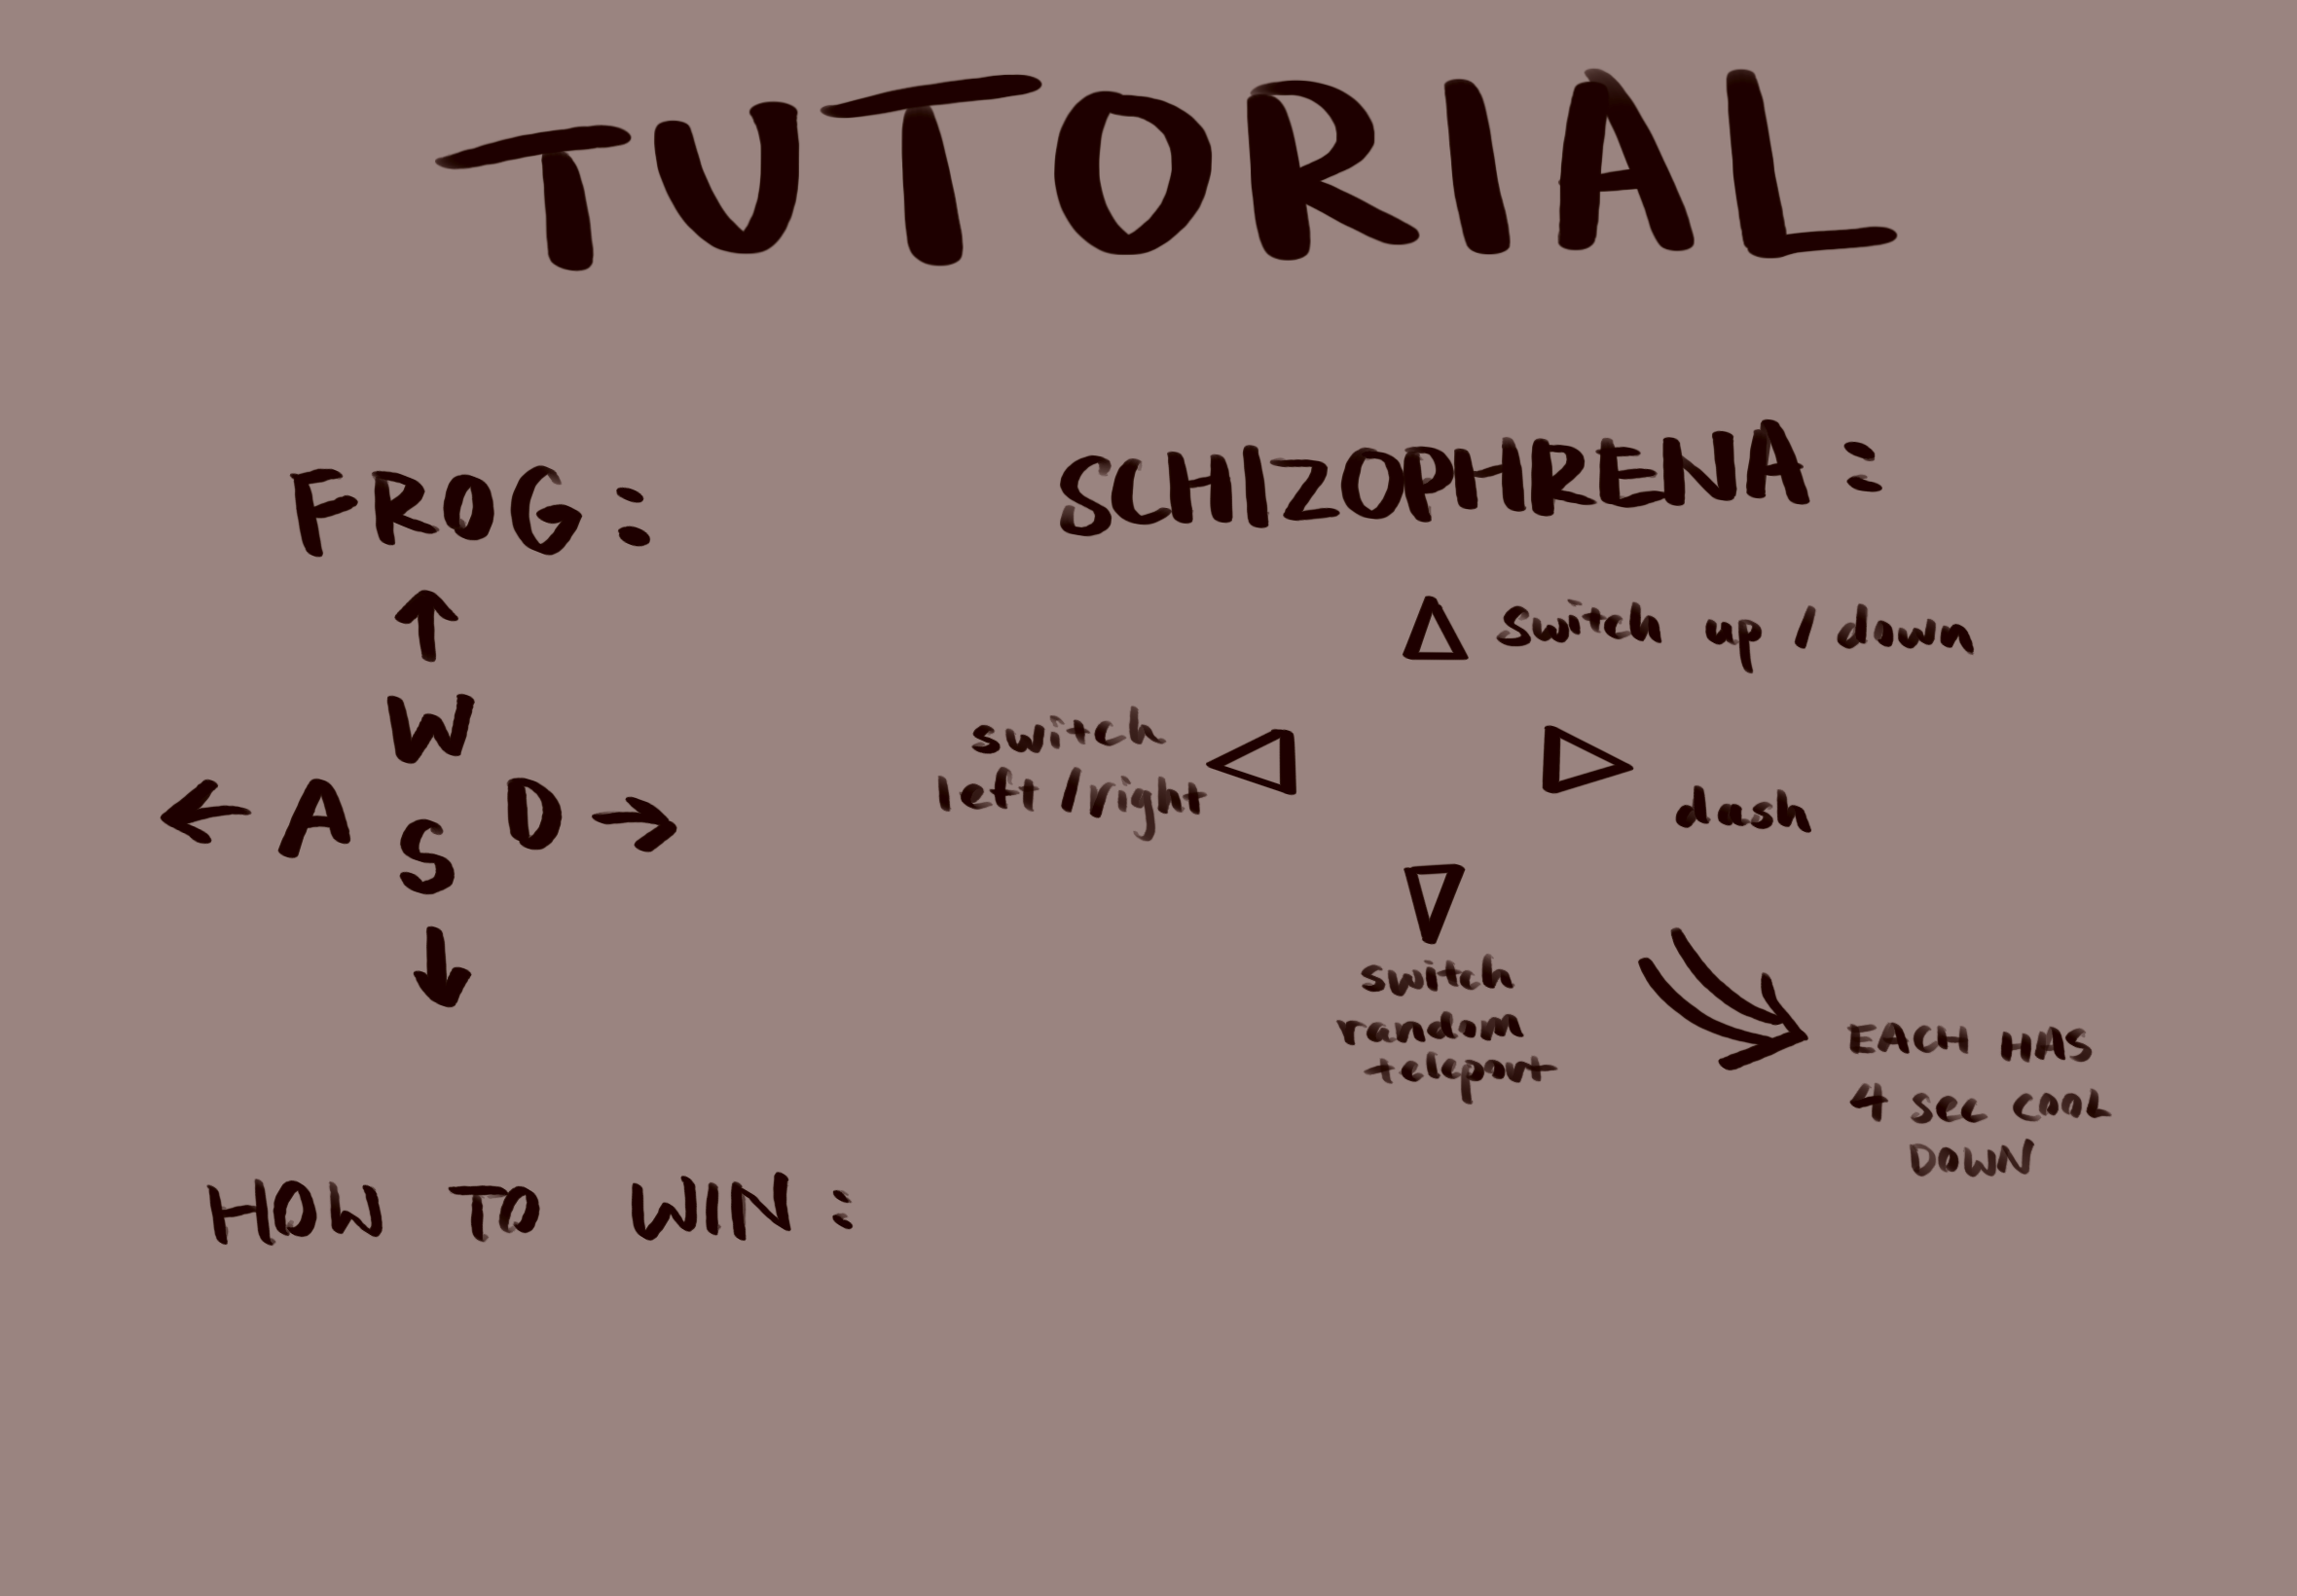 TUTORIAL
FROG:
W
A D
S
SCHIZOPHRENA:
switch up / down
switch
left / right
dash
switch
random
teleport
EACH HAS
4 SEC COOL
DOWN
HOW TO WIN: